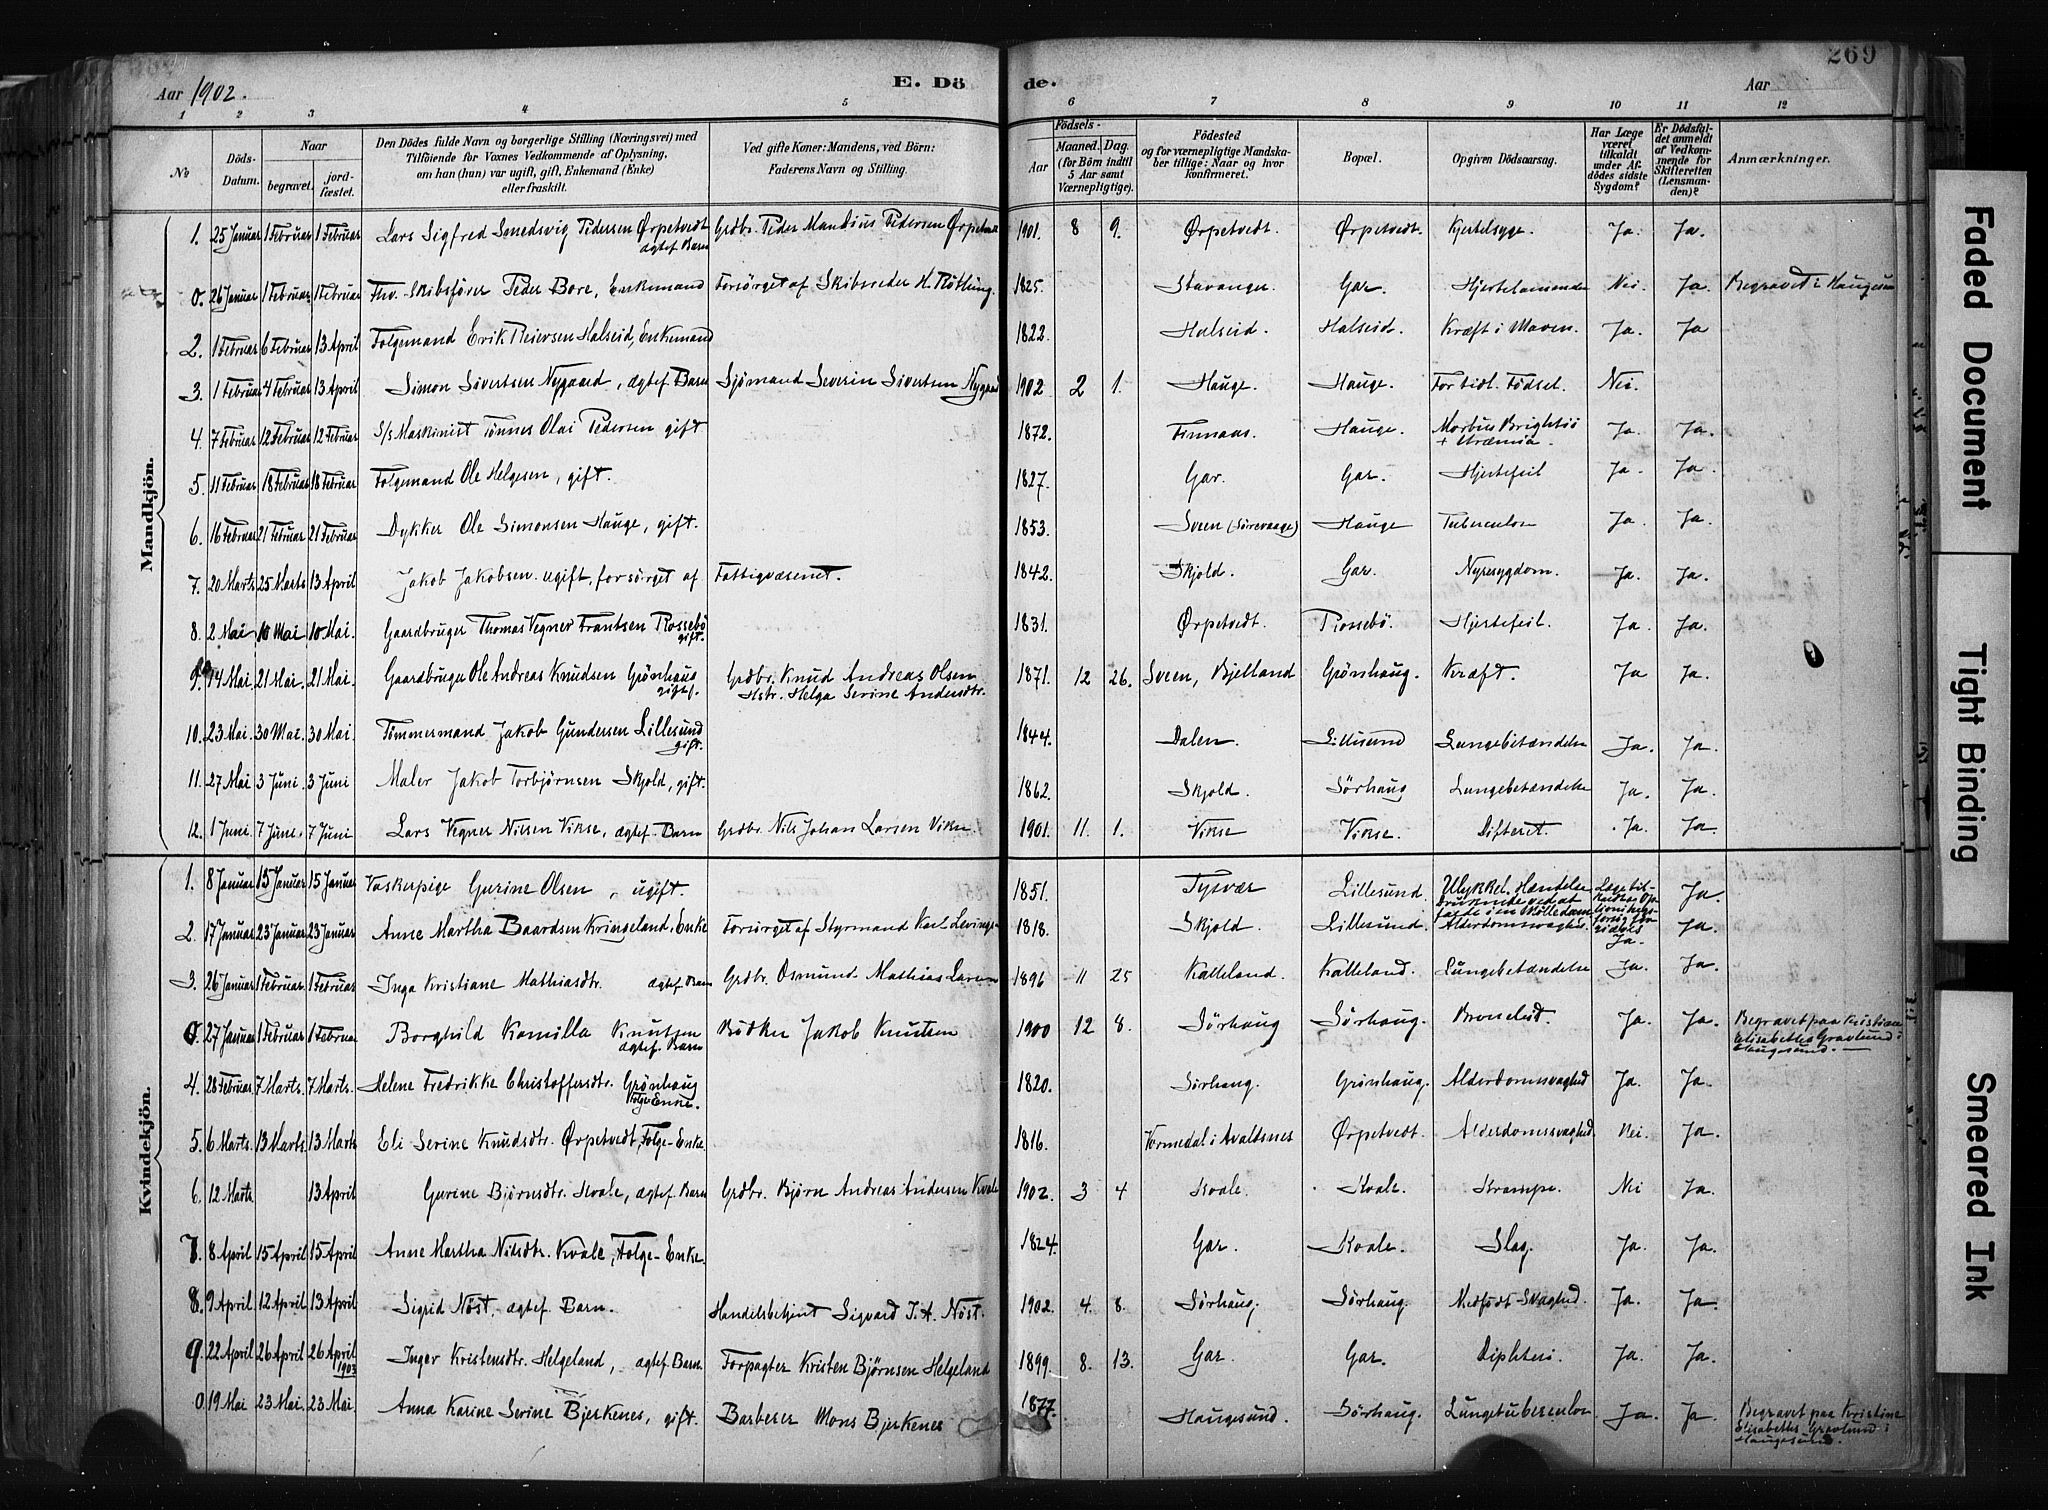 269
Aar 1902. E. Dö de. Aar
1 2 3 4 5 6 7 8 9 10 11 12
No
Döds-Datum.
Naar
begravet.
jord-fæstet.
Den Dödes fulde Navn og borgerlige Stilling (Næringsvei) med
Tilföiende for Voxnes Vedkommende af Oplysning,
om han (hun) var ugift, gift, Enkemand (Enke)
eller fraskilt.
Ved gifte Koner: Mandens, ved Börn:
Faderens Navn og Stilling.
Födsels-
Aar
Maaned. Dag.
(for Börn indtil
5 Aar samt
Værnepligtige).
Födested
og for værnepligtige Mandska-
ber tillige: Naar og hvor
konfirmeret.
Bopæl.
Opgiven Dödsaarsag.
Har Læge
været
tilkaldt
under Af-
dödes sidste
Sygdom?
Er Dödsfal-
det anmeldt
af Vedkom-
mende for
Skifteretten
(Lensman-
den)?
Anmærkninger.
Mandkjön.
1. 25 Januar 1 Februar 1 Februar Lars Sigfred Smedsvig Pedersen Ørpetvedt ægtef. Barn Grdbr. Peder Mandius Pedersen 1901. 8 9. Ørpetvedt. Ørpetvedt. Kjertelsyge. Ja. Ja.
0. 26 Januar 1 Februar 1 Februar Fhv. Skibsfører Peder Bore, Enkemand Forsørget af Skibsreder H. 1825. Stavanger. Gar. Nei. Ja. Begravet i Haugesun
2. 1 Februar 6 Februar 13 April Folgemand Erik Reiersen Halseid, Enkemand 1822. Halseid. Halseid. Kræft i Maven. Ja. Ja
3. 1 Februar 4 Februar 13 April Simon Sivertsen Nygaard, ægtef. Barn Sjömand Severin Sivertsen Nygaard 1902 2 1. Hauge. Hauge. For tidl. Födsel. Nei.
4. 7 Februar 12 Februar 12 Februar S/s Maskinist Tönnes Olai Pedersen gift 1872. Finnaas. Hauge. Morbus Brightii + Uræmia. Ja. Ja.
5. 11 Februar 18 Februar 18 Februar Folgemand Ole Helgesen, gift. 1827. Gar. Gar. Hjertefeil Ja. Ja.
6. 16 Februar 21 Februar 21 Februar Dykker Ole Simonsen Hauge, gift. 1853. Sveen (Lörevaage) Hauge Tuberculose Ja. Ja.
7. 20 Marts 25 Marts 13 April Jakob Jakobsen ugift, forsörget af Fattigvæsenet. 1842. Skjold. Gar. Nyresygdom. Ja. Ja.
8. 2 Mai 10 Mai 10 Mai. Gaardbruger Thomas Vegner Frantsen Rossebö gift. 1831. Ørpetvedt. Rossebö. Hjertefeil. Ja. Ja.
9. 14 Mai. 21 Mai. 21 Mai. Gaardbruger Ole Andreas Knudsen Grönhaug gift. Grdbr. Knud Andreas Olsen Hstr. Helga Serine Andersdtr. 1871. 12 26. Sveen, Bjelland Grönhaug. Kræft. Ja Ja.
10. 23 Mai. 30 Mai. 30 Mai. Tömmermand Jakob Gundersen Lillesund gift. 1844. Dalen. Lillesund Lungebetændelse Ja. Ja.
11. 27 Mai 3 Juni. 3 Juni Maler Jakob Torbjørnsen Skjold, gift. 1862. Skjold. Sörhaug Lungebetændelse Ja. Ja.
12. 1 Juni. 7 Juni. 7 Juni Lars Vegner Nilsen Vikse, ægtef. Barn Grdbr. Nils Johan Larsen Vikse 1901. 11. 1. Vikse Vikse. Difterit. Ja. Ja.
Kvindekjön.
1. 8 Januar 15 Januar 15 Januar Vaskerpige Gurine Olsen, ugift. 1851. Tysvær Lillesund. Ulykkel. Hændelse Ja.
2. 17 Januar 23 Januar 23 Januar Anne Martha Baardsen Kringeland, Enke Forsörget af Styrmand Karl 1818. Skjold. Lillesund. Alderdomssvaghed. Ja. Ja.
3. 26 Januar 1 Februar 1 Februar Inga Kristiane Mathiasdtr. ægtef. Barn Grdbr. Osmund Mathias Larsen 1896 11 25 Kalleland. Kalleland. Lungebetændelse Ja. Ja.
0. 27 Januar 1 Februar 1 Februar Borghild Kamilla Knutsen ægtef. Barn Bödker Jakob Knutsen 1900 12 8. Sörhaug Sörhaug. Ja. Ja. Begravet paa Kristine Elisabeths Gravlund i Haugesund.
4. 28 Februar 7 Marts. 7 Marts. Helene Fredrikke Christoffersdtr. Grönhaug Folge-Enke. 1820. Sörhaug. Grönhaug. Alderdomssvaghed Ja. Ja.
5. 6 Marts. 13 Marts 13 Marts Eli Serine Knudsdtr. Ørpetvedt, Folge-Enke. 1816. Vormedal i Avaldsnes Ørpetvedt. Alderdomssvaghed. Nei. Ja.
6. 12 Marts 13 April Gurine Björnsdtr. Kvale, ægtef. Barn Grdbr. Björn Andreas Andersen Kvale 1902. 3 4 Kvale. Kvale. Krampe. Nei Ja.
7. 8 April 15 April 15 April Anne Martha Nilsdtr. Kvale, Folge-Enke. 1824. Gar. Kvale. Slag. Ja. Ja.
8. 9 April. 12 April 13 April Sigrid Nöst. ægtef. Barn. Handelsbetjent Sigvard J. A. Nöst. 1902. 4. 8. Sörhaug. Sörhaug. Medfödt Svaghed. Ja. Ja.
9 22 April 26 April 26 April 1903 Inger Kristensdtr. Helgeland, ægtef. Barn. Forpagter Kristen Bjørnsen Helgeland 1899. 8. 13. Gar. Gar. Diphteri. Ja. Ja.
0. 19 Mai 23 Mai. 23 Mai. Anna Karine Serine Bjerkenes, gift. Barberer Mons Bjerkenes 1877. Haugesund. Sörhaug. Lungetuberculose Ja. Ja. Begravet paa Kristine Elisabeths Gravlund i Haugesund.
Faded Document
Tight Binding
Smeared Ink